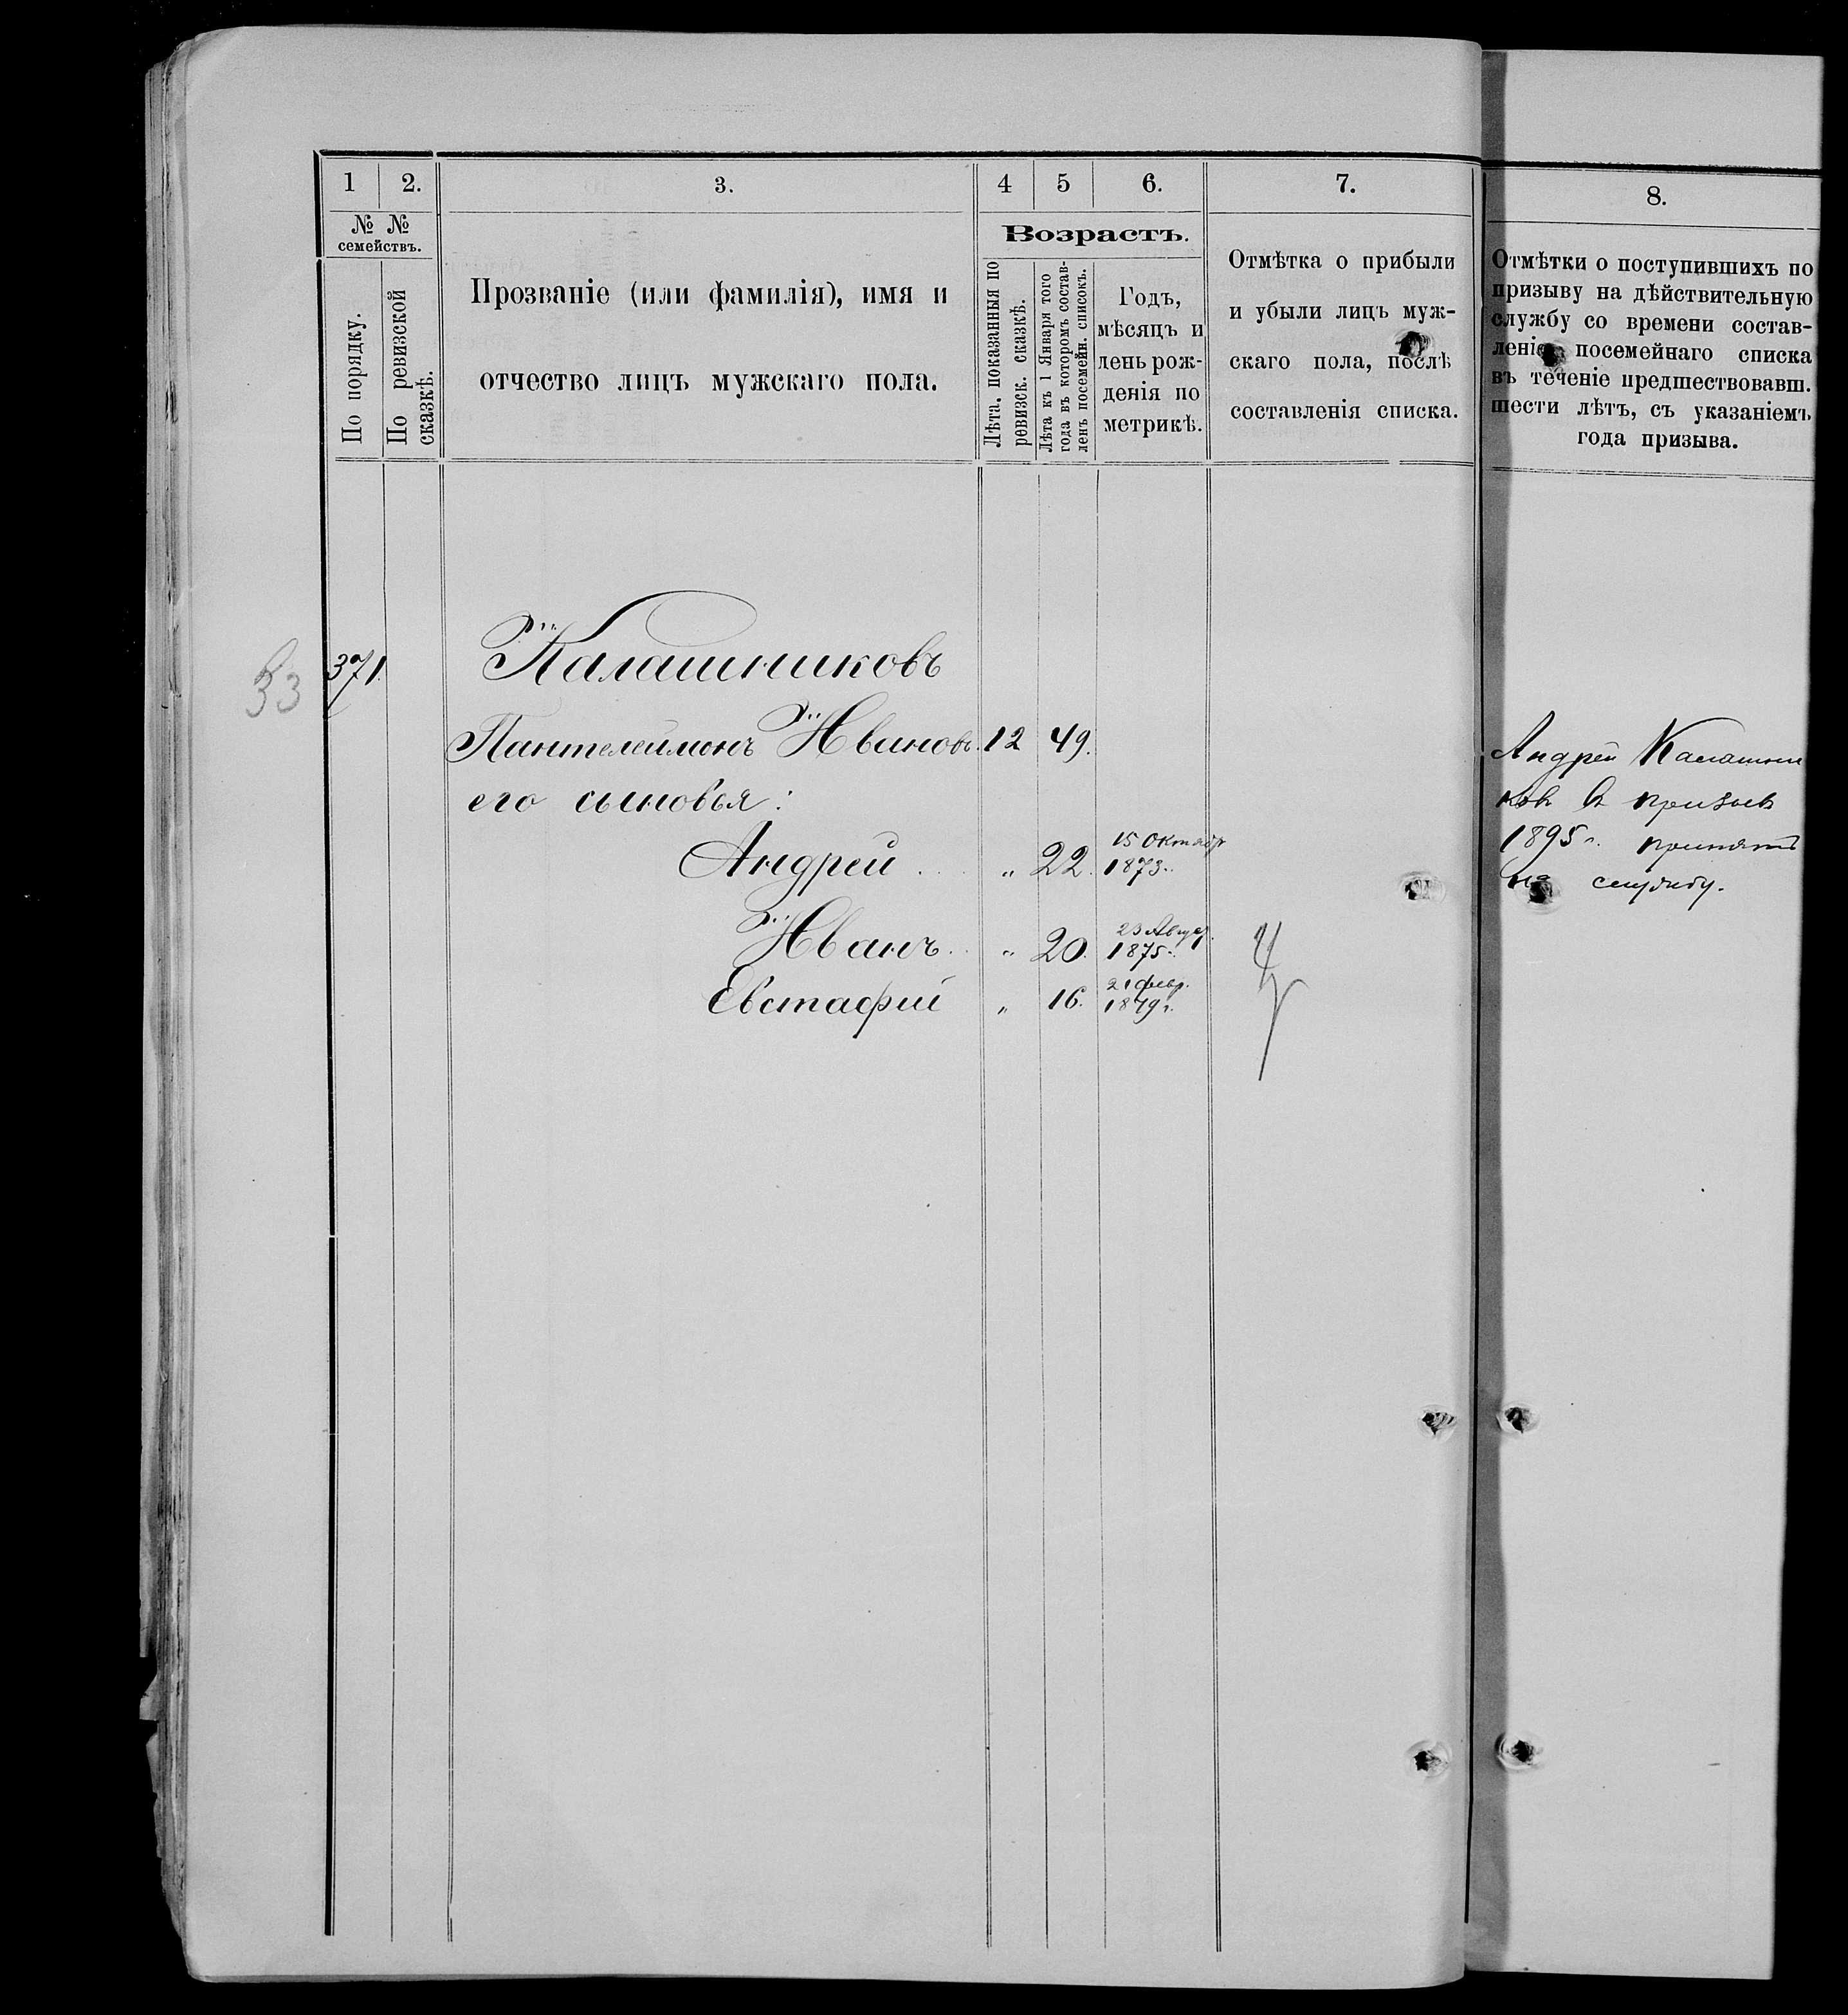 1 2. 3. 4 5 6. 7. 8.
№ №
семействъ.
По порядку.
По ревизской
сказкѣ.
Прозваніе (или фамилія), имя и
отчество лицъ мужскаго пола.
Возрастъ.
Лѣта, показанныя по
ревизск. сказкѣ.
Лѣта къ 1 Января того
года въ которомъ состав-
ленъ посемейн. списокъ.
Годъ,
мѣсяцъ и
день рож-
денія по
метрикѣ.
Отмѣтка о прибыли
и убыли лицъ муж-
скаго пола, послѣ
составленія списка.
Отмѣтки о поступившихъ по
призыву на дѣйствительную
службу со времени состав-
ленія посемейнаго списка
въ теченіе предшествовавш.
шести лѣтъ, съ указаніемъ
года призыва.
33 371. Калашниковъ
Пантелеймонъ Ивановъ. 12 49.
его сыновья:
Андрей . . „ 22. 15 Октября
1873..
Иванъ . . „ 20. 23 Авгус.
1875..
Евстафий „ 16. 21 февр.
1879 г.
Андрей Калашни
ковъ въ призывъ
1895 г. принятъ
на службу.